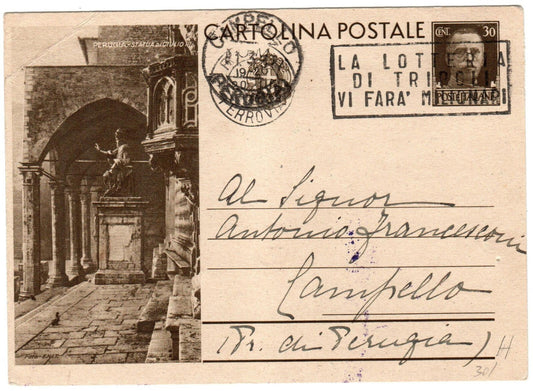 CARTOLINA POSTALE
CENT. 30
POSTE ITALIANE
PERUGIA - STATUA DI GIULIO III
CAMPELLO
PERUGIA
FERROVIA
LA LOTTERIA
DI TRIPOLI
VI FARA' MILIONARI
Al Signor
Antonio Francesconi
Campello
(Pr. di Perugia)